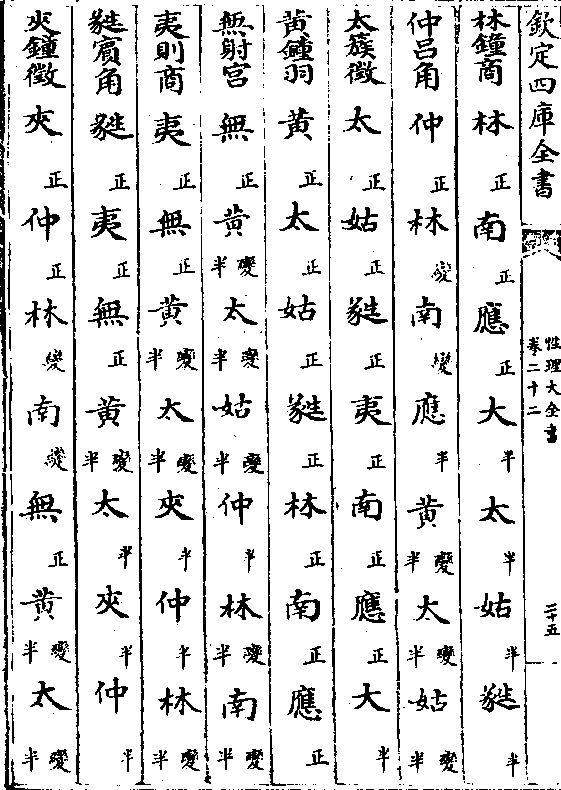 欽定四庫全書
性理大全書
卷二十二
二十五
林鐘商 林正 南正 應正 大半 太半 姑半 蕤半
仲呂角 仲正 林變 南變 應半 黃變半 太變半 姑變半
太簇徵 太正 姑正 蕤正 夷正 南正 應正 大半
黃鍾羽 黃正 太正 姑正 蕤正 林正 南正 應正
無射宮 無正 黃變半 太變半 姑變半 仲半 林變半 南變半
夷則商 夷正 無正 黃變半 太變半 夾半 仲半 林變半
蕤賓角 蕤正 夷正 無正 黃變半 太半 夾半 仲半
夾鐘徵 夾正 仲正 林變 南變 無正 黃變半 太變半